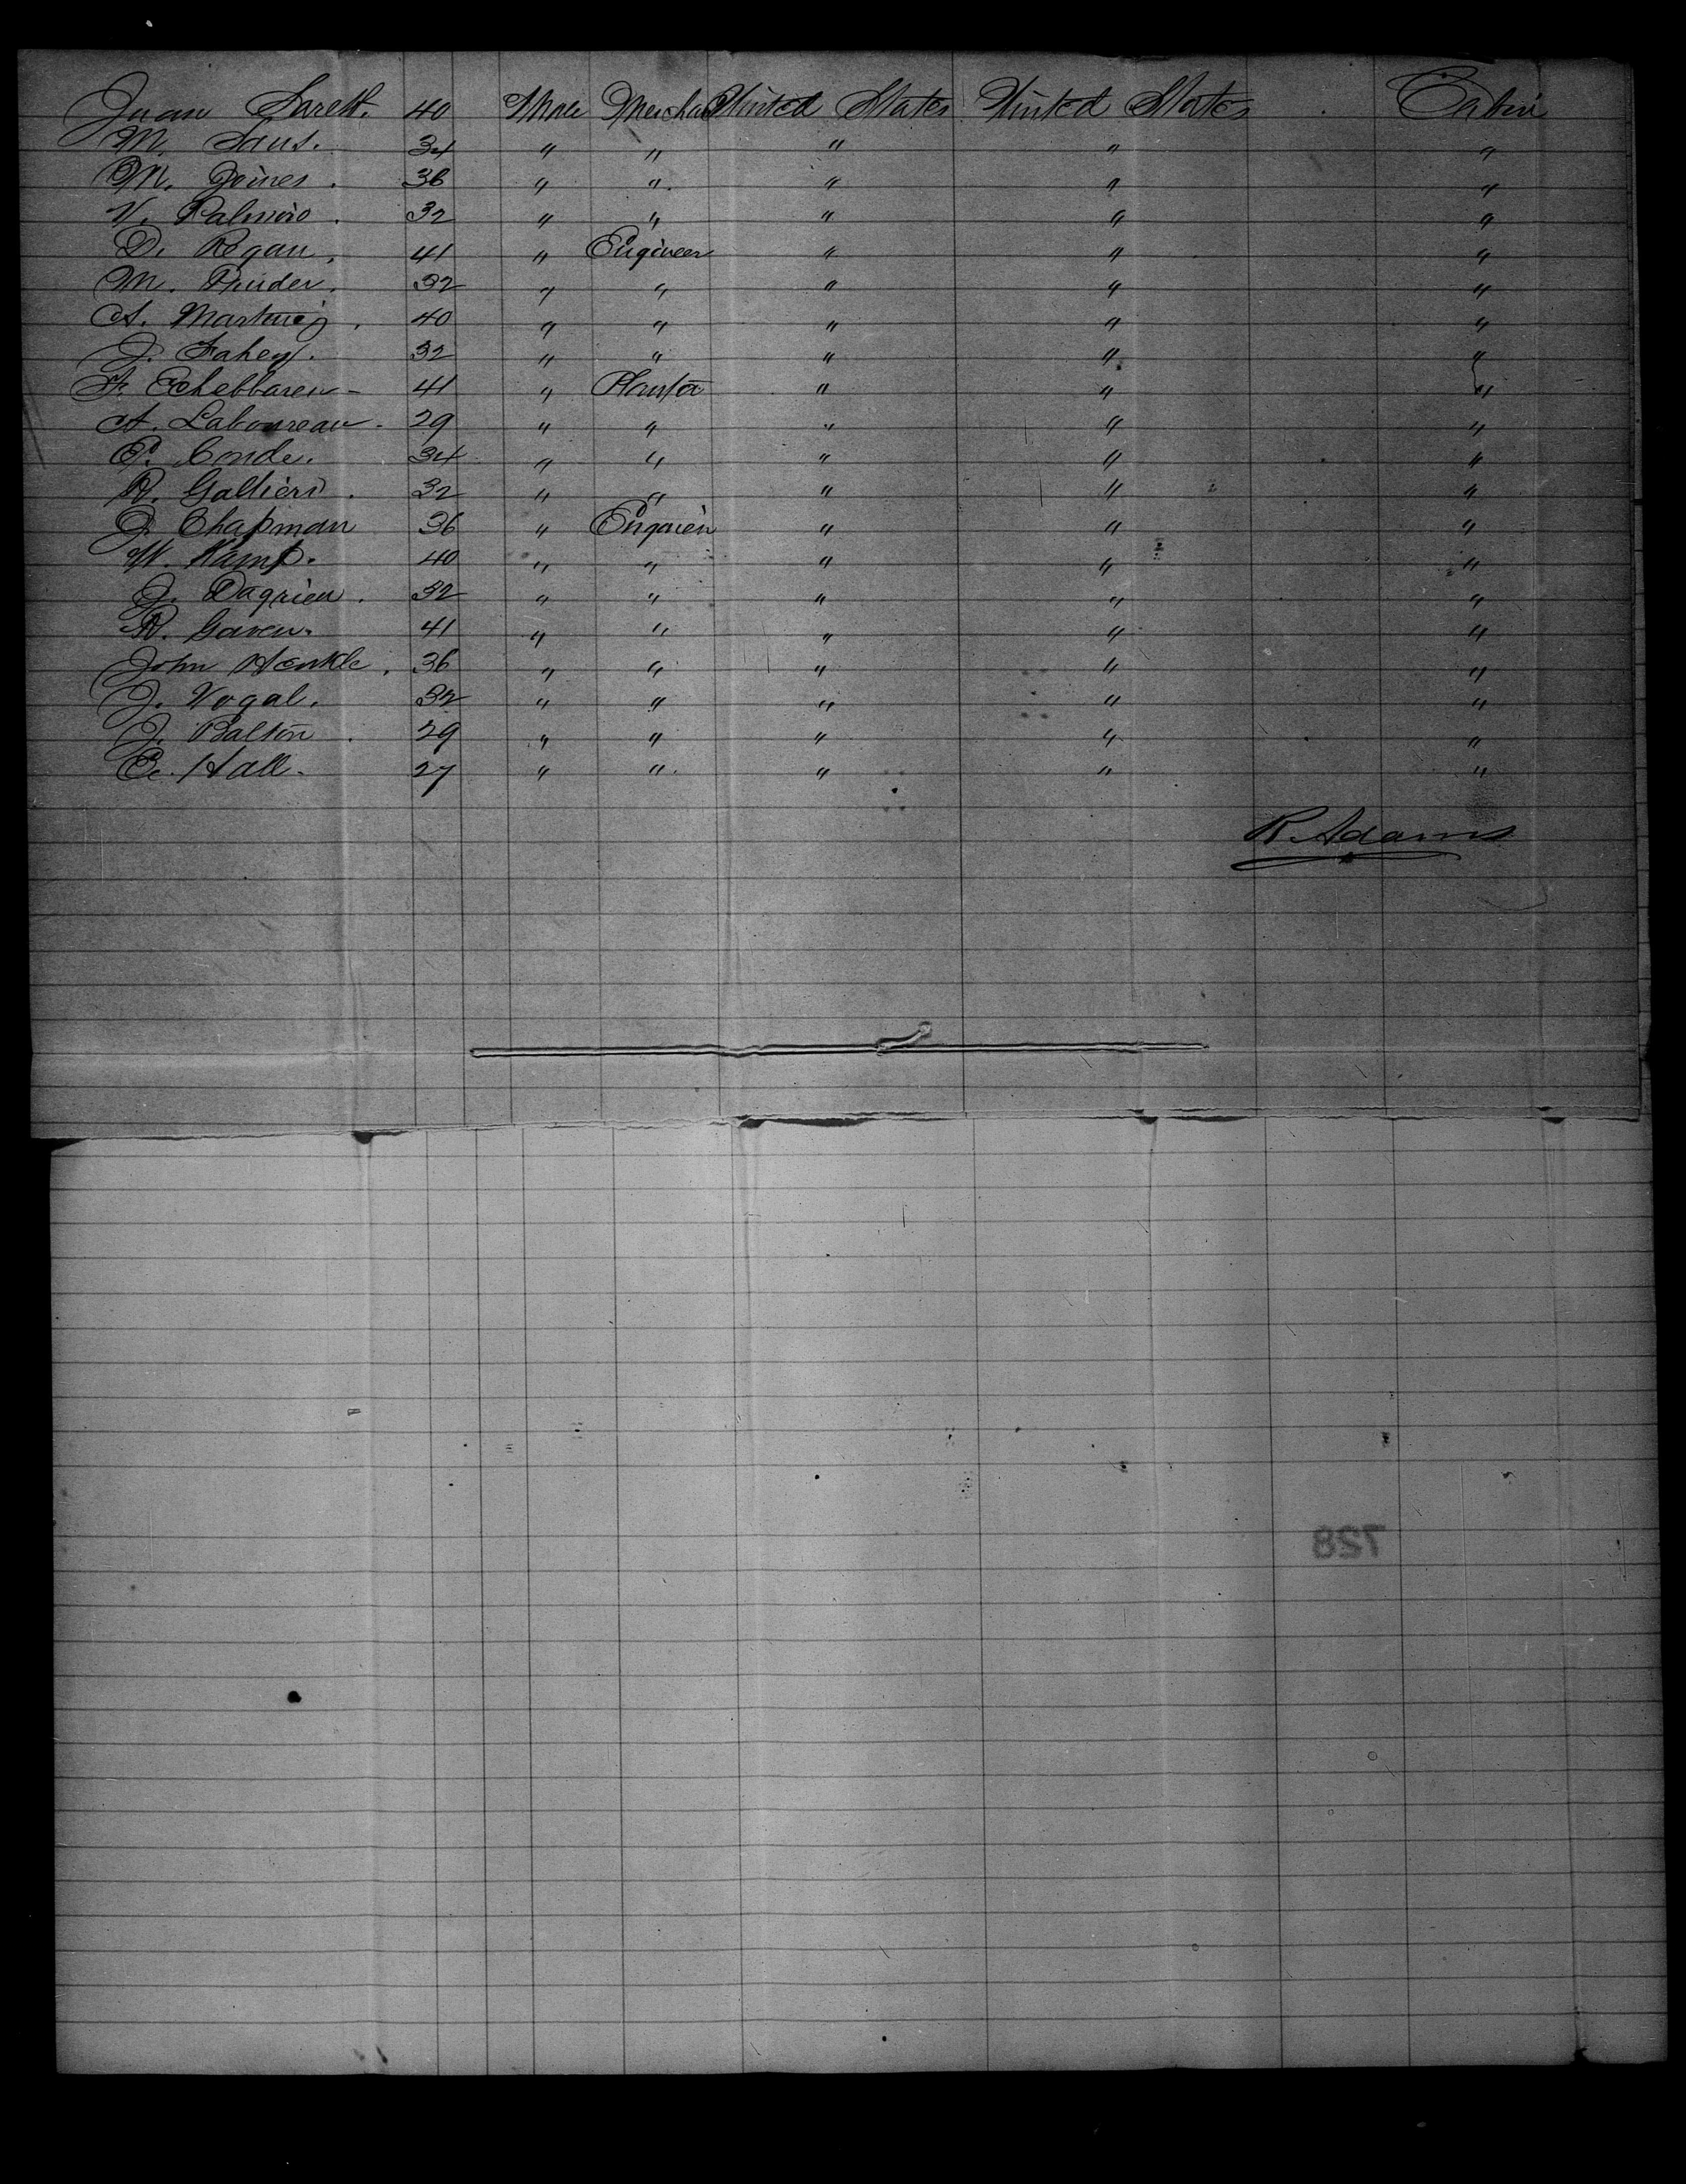 Juan Sarell. 40 Male Merchant United States United States Cabin
M. Saus. 34 " " " " "
M. Goines. 36 " " " " "
V. Palmiro. 32 " " " " "
D. Regan. 41 " Engineer " " "
M. Pinder. 32 " " " " "
A. Martinez. 40 " " " " "
J. Fahey. 32 " " " " "
F. Echebbaren - 41 " Planter " " "
A. Laboureau. 29 " " " " "
P. Conde. 34 " " " " "
R. Galtieri. 32 " " " " "
J. Chapman 36 " Engineer " " "
W. Kamp. 40 " " " " "
J. 32 " " " " "
R. Gaven. 41 " " " " "
John Henkle. 36 " " " " "
J. Vogal. 32 " " " " "
J. Balton. 29 " " " " "
E. Hall. 27 " " " " "
R. Adams
728